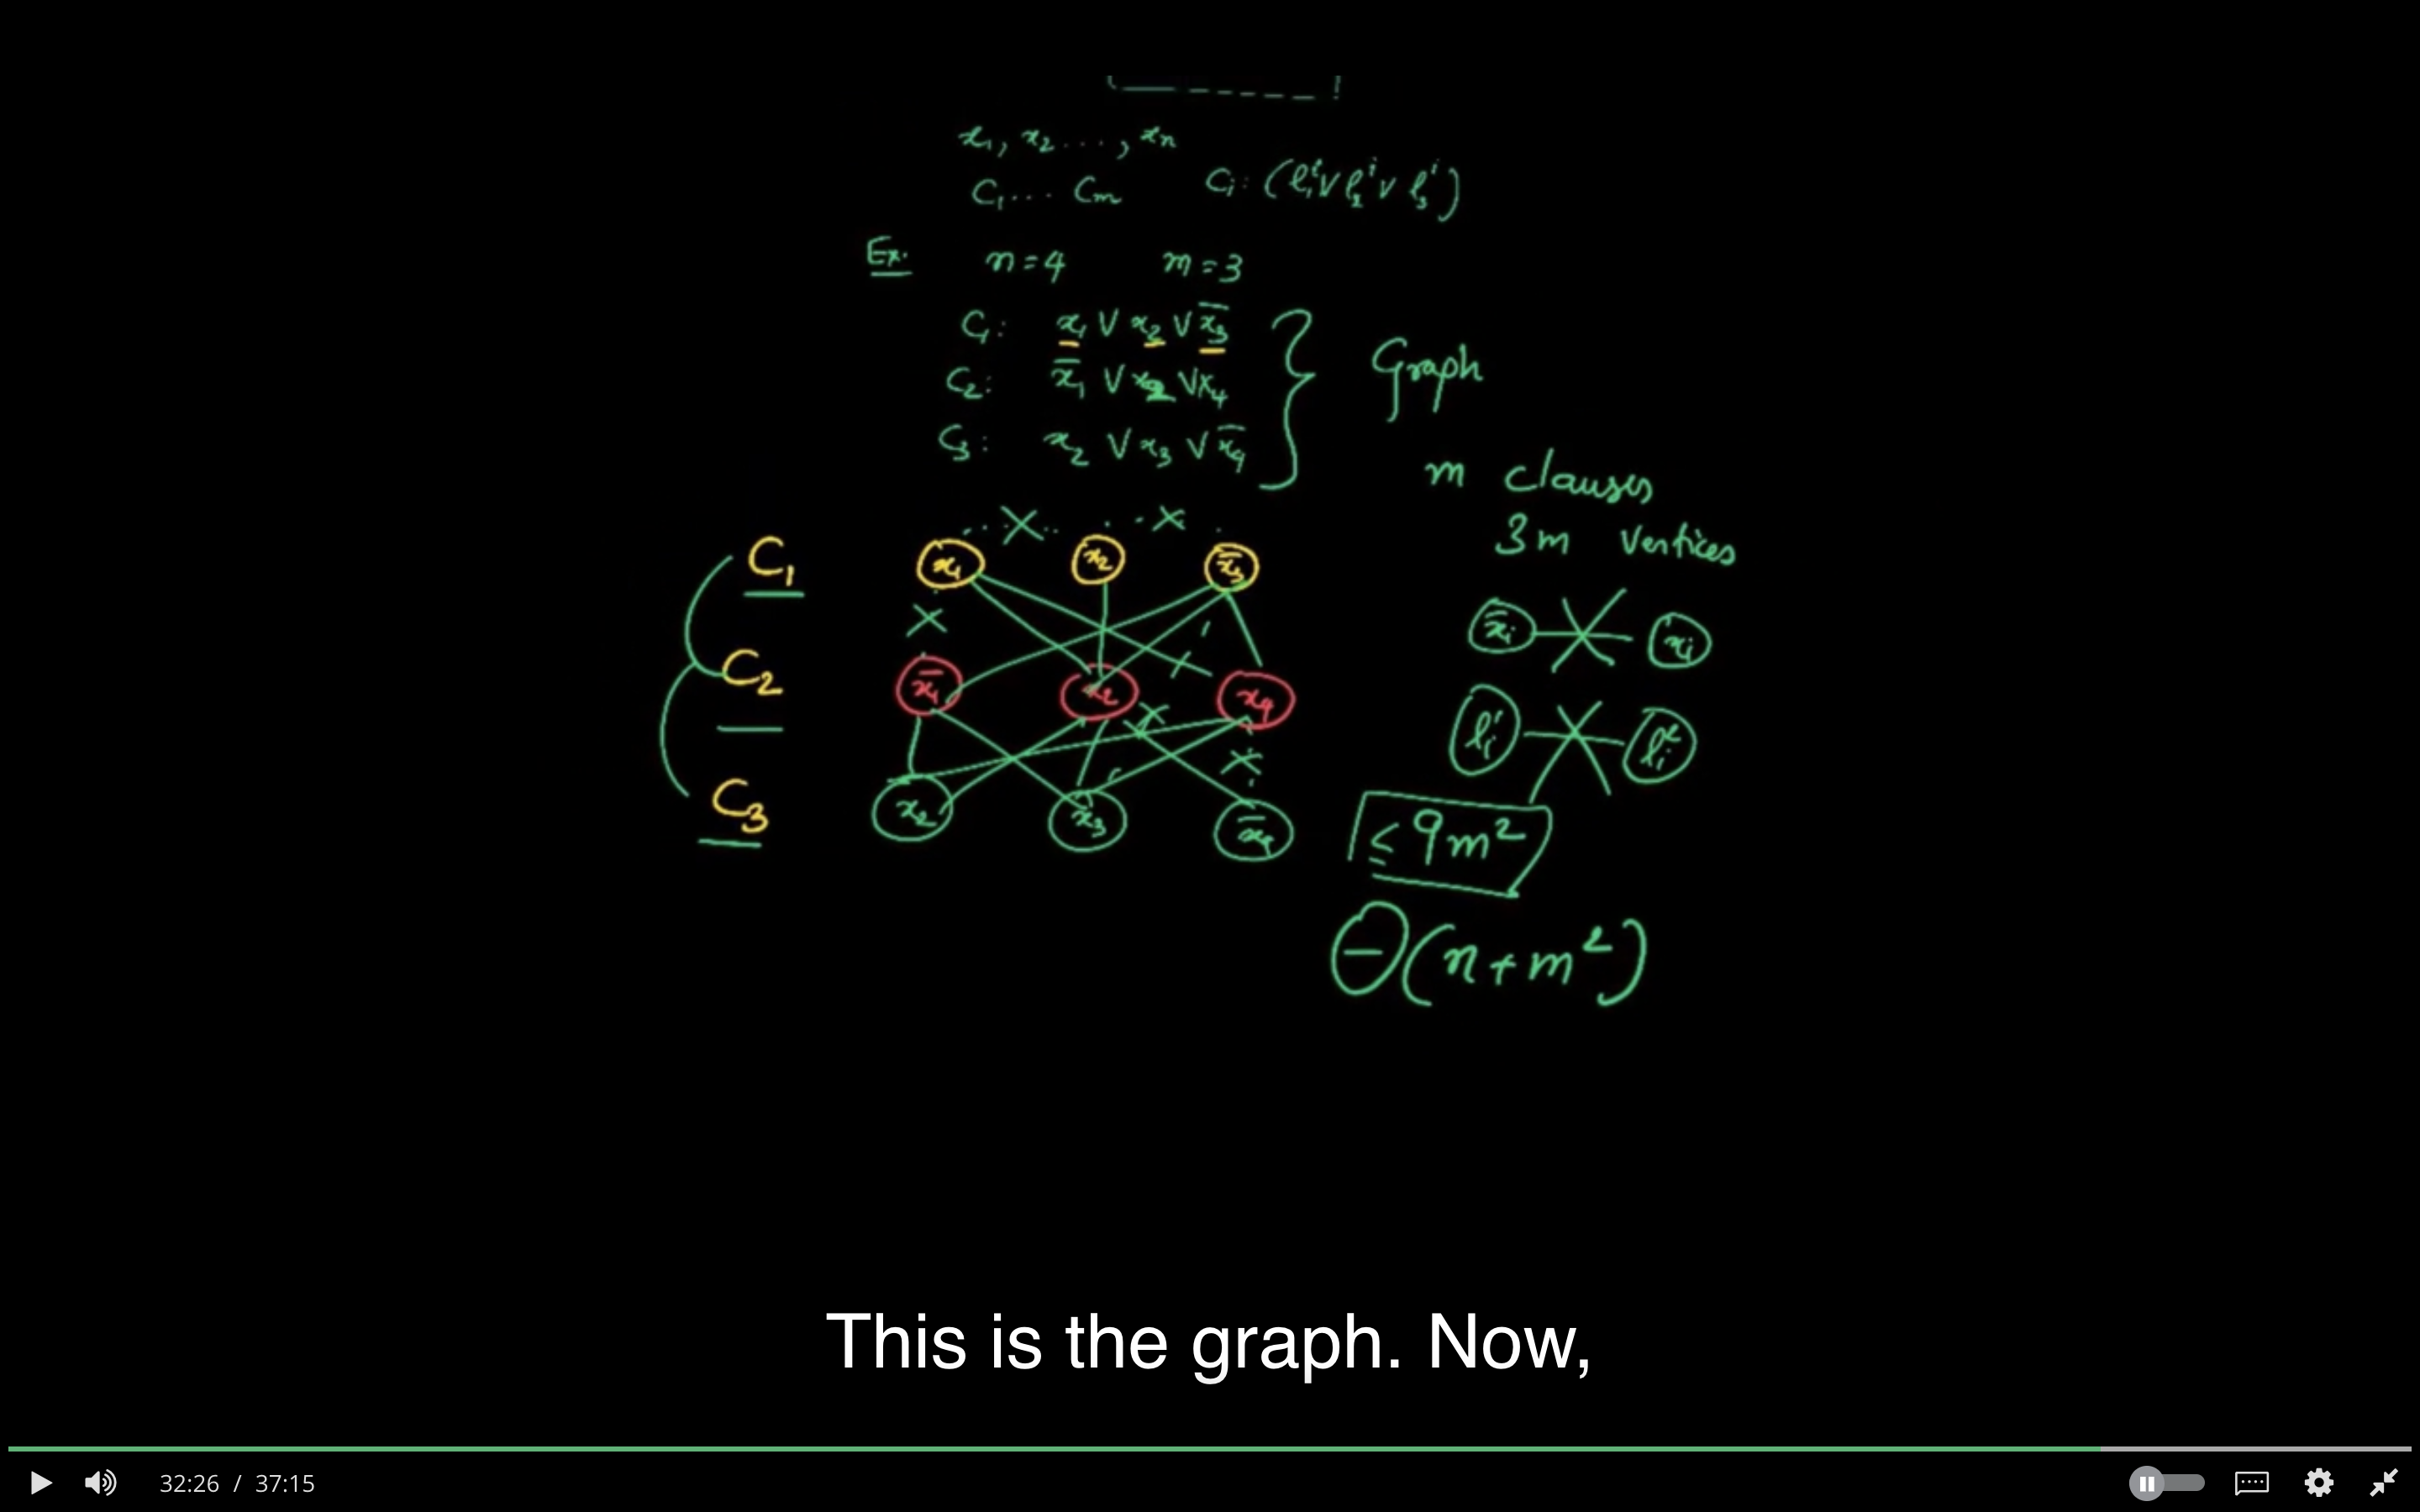 x₁, x₂ ..., xₙ
C₁ ... Cₘ  Cᵢ: (ℓ₁ⁱ ∨ ℓ₂ⁱ ∨ ℓ₃ⁱ)
Ex. n = 4 m = 3
C₁: x₁ ∨ x₂ ∨ x̄₃
C₂: x̄₁ ∨ x₂ ∨ x₄
C₃: x₂ ∨ x₃ ∨ x̄₄
Graph
m clauses
3m vertices
C₁ x₁ x₂ x̄₃
x̄ᵢ xᵢ
C₂ x̄₁ x₂ x₄
C₃ x₂ x₃ x̄₄
≤ 9m²
Θ(n + m²)
This is the graph. Now,
32:26 / 37:15